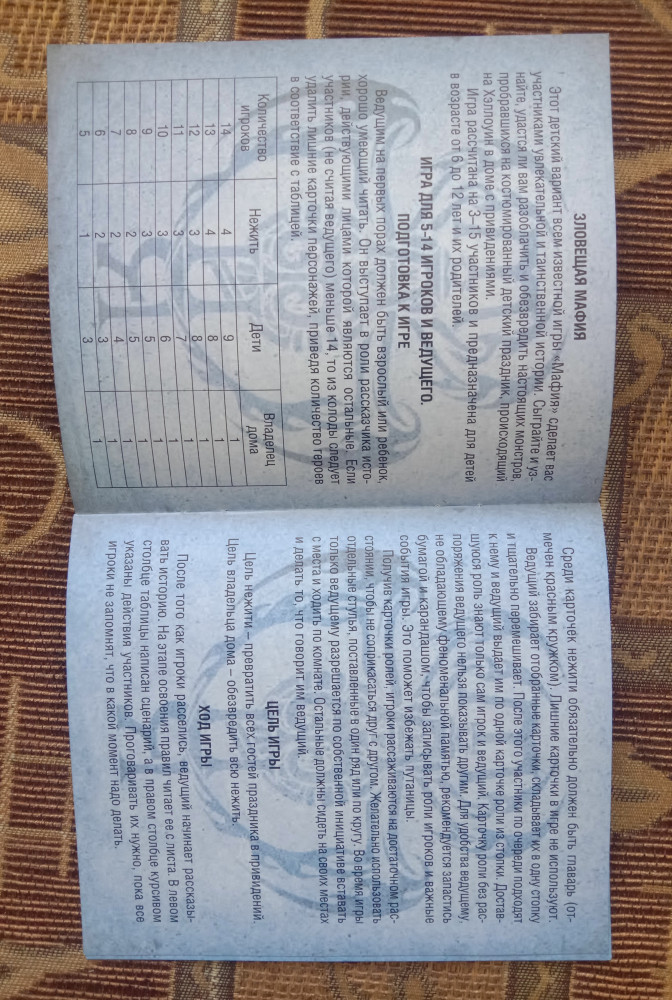 ЗЛОВЕЩАЯ МАФИЯ
Этот детский вариант всем известной игры «Мафия» сделает вас
участниками увлекательной и таинственной истории. Сыграйте и уз-
найте, удастся ли вам разоблачить и обезвредить настоящих монстров,
пробравшихся на костюмированный детский праздник, происходящий
на Хэллоуин в доме с привидениями.
Игра рассчитана на 3–15 участников и предназначена для детей
в возрасте от 6 до 12 лет и их родителей.
ИГРА ДЛЯ 5-14 ИГРОКОВ И ВЕДУЩЕГО.
ПОДГОТОВКА К ИГРЕ
Ведущим на первых порах должен быть взрослый или ребенок,
хорошо умеющий читать. Он выступает в роли рассказчика исто-
рии, действующими лицами которой являются остальные. Если
участников (не считая ведущего) меньше 14, то из колоды следует
удалить лишние карточки персонажей, приведя количество героев
в соответствие с таблицей.
Количество игроков Нежить Дети Владелец дома
14 4 9 1
13 4 8 1
12 3 8 1
11 3 7 1
10 3 6 1
9 3 5 1
8 2 5 1
7 2 4 1
6 2 3 1
5 1 3 1
Среди карточек нежити обязательно должен быть главарь (от-
мечен красным кружком). Лишние карточки в игре не используют.
Ведущий забирает отобранные карточки, складывает их в одну стопку
и тщательно перемешивает. После этого участники по очереди подходят
к нему и ведущий выдает им по одной карточке роли из стопки. Достав-
шуюся роль знают только сам игрок и ведущий. Карточку роли без рас-
поряжения ведущего нельзя показывать другим. Для удобства ведущему,
не обладающему феноменальной памятью, рекомендуется запастись
бумагой и карандашом, чтобы записывать роли игроков и важные
события игры. Это поможет избежать путаницы.
Получив карточки ролей, игроки рассаживаются на достаточном рас-
стоянии, чтобы не соприкасаться друг с другом. Желательно использовать
отдельные стулья, поставленные в один ряд или по кругу. Во время игры
только ведущему разрешается по собственной инициативе вставать
с места и ходить по комнате. Остальные должны сидеть на своих местах
и делать то, что говорит им ведущий.
ЦЕЛЬ ИГРЫ
Цель нежити – превратить всех гостей праздника в привидений.
Цель владельца дома – обезвредить всю нежить.
ХОД ИГРЫ
После того как игроки расселись, ведущий начинает рассказы-
вать историю. На этапе освоения правил читает ее с листа. В левом
столбце таблицы написан сценарий, а в правом столбце курсивом
указаны действия участников. Проговаривать их нужно, пока все
игроки не запомнят, что в какой момент надо делать.